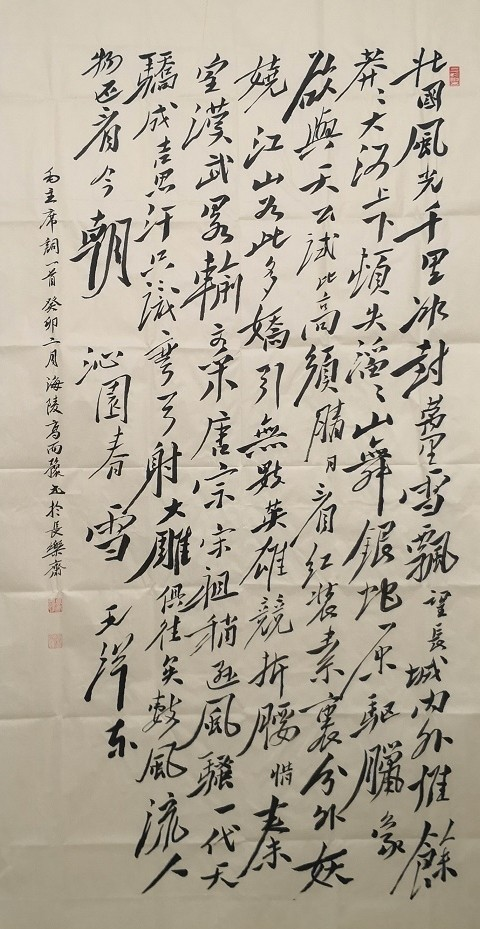 北國風光千里冰封萬里雪飄望長城內外惟餘
莽〻大河上下頓失滔〻山舞銀蛇原驅臘象
欲與天公試比高須晴日看紅裝素裹分外妖
嬈江山如此多嬌引無數英雄競折腰惜秦
皇漢武略輸文采唐宗宋祖稍遜風騷一代天
驕成吉思汗只識彎弓射大雕俱往矣數風流人
物還看今朝沁園春雪毛澤東
毛主席詞一首癸卯二月海陵高而書於長樂齋